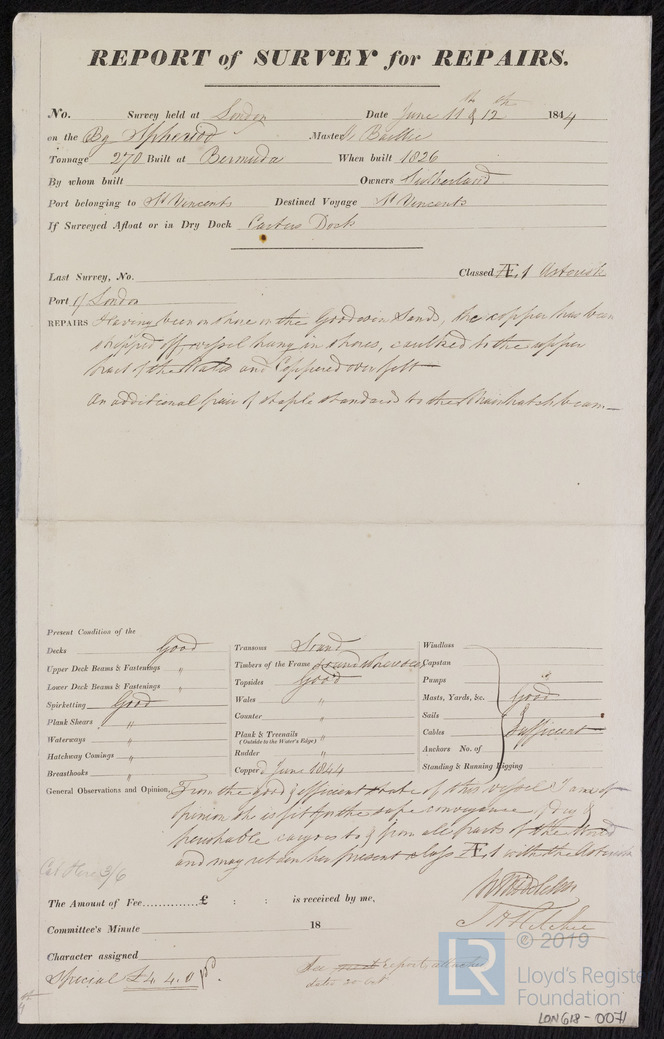 REPORT of SURVEY for REPAIRS.
No. Survey held at London Date June 11th & 12th 1844
on the Bg Spheroid Master J. Baillie
Tonnage 270 Built at Bermuda When built 1826
By whom built Owners Sutherland
Port belonging to St Vincents Destined Voyage St Vincents
If Surveyed Afloat or in Dry Dock Carters Dock
Last Survey, No. Classed Æ.1 Asterisk
Port of London
REPAIRS Having been on shore on the Goodwin Sands, the copper has been
stripped off, vessel hung in shores, caulked to the upper
part of the and Coppered over felt
An additional pair of staple standards to the Main hatch beam
Present Condition of the
Decks Good
Upper Deck Beams & Fastenings "
Lower Deck Beams & Fastenings "
Spirketting Good
Plank Shears "
Waterways "
Hatchway Comings "
Breasthooks "
Transoms Sound
Timbers of the Frame Sound where seen
Topsides Good
Wales "
Counter "
Plank & Treenails "
(Outside to the Water's Edge)
Rudder "
Copper'd June 1844
Windlass
Capstan
Pumps
Masts, Yards, &c. Good
Sails &
Cables Sufficient
Anchors No. of
Standing & Running Rigging
General Observations and Opinion, From the good & efficient state of this vessel I am of
opinion she is fit for the safe conveyance of Dry &
perishable cargoes to & from all parts of the World
and may retain her present class Æ.1 with the Asterisk
3/6
The Amount of Fee £ : : is received by me,
Committee's Minute 18
Character assigned
Special £4.4.0 pd
See report attached
© 2019
Lloyd's Register
Foundation
LON618-0071